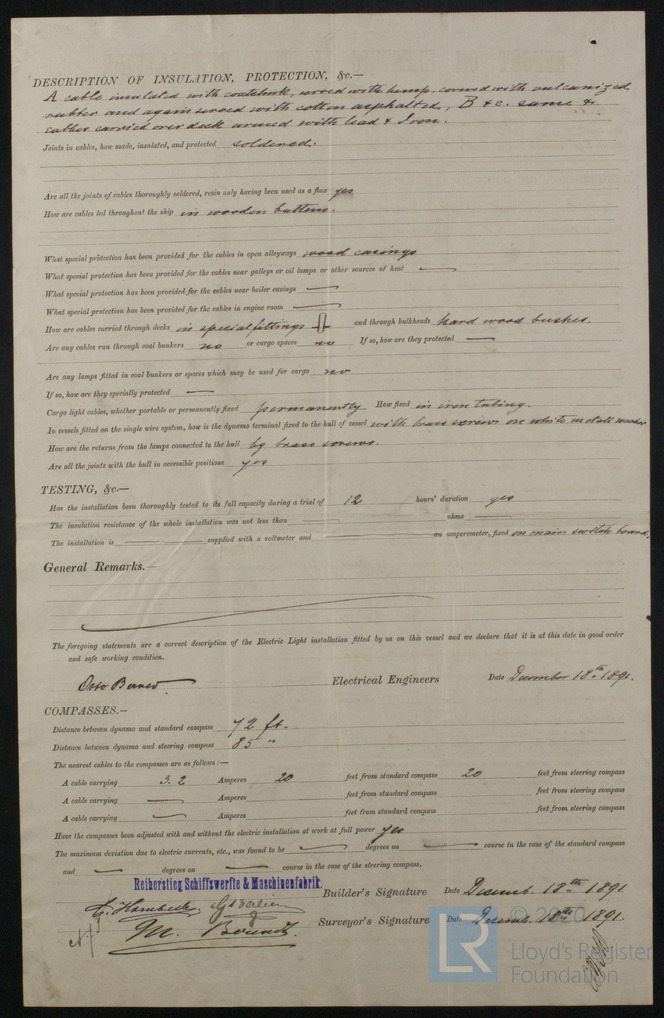 DESCRIPTION OF INSULATION, PROTECTION, &c.—
A cable insulated with served with hemp, covered with vulcanized
rubber and again served with cotton asphalted, B & C. same &
carried over deck armed with lead & Iron.
Joints in cables, how made, insulated, and protected soldered.
Are all the joints of cables thoroughly soldered, resin only having been used as a flux yes
How are cables led throughout the ship in wooden battens.
What special protection has been provided for the cables in open alleyways wood casings
What special protection has been provided for the cables near galleys or oil lamps or other sources of heat —
What special protection has been provided for the cables near boiler casings —
What special protection has been provided for the cables in engine room —
How are cables carried through decks in special fittings and through bulkheads hard wood bushes.
Are any cables run through coal bunkers no or cargo spaces no If so, how are they protected —
Are any lamps fitted in coal bunkers or spaces which may be used for cargo no
If so, how are they specially protected —
Cargo light cables, whether portable or permanently fixed permanently How fixed in iron tubing.
In vessels fitted on the single wire system, how is the dynamo terminal fixed to the hull of vessel with brass screws on white metall washer
How are the returns from the lamps connected to the hull by brass screws.
Are all the joints with the hull in accessible positions yes
TESTING, &c.—
Has the installation been thoroughly tested to its full capacity during a trial of 12 hours' duration yes
The insulation resistance of the whole installation was not less than — ohms —
The installation is — supplied with a voltmeter and — an amperometer, fixed on main switch board.
General Remarks.—
The foregoing statements are a correct description of the Electric Light installation fitted by us on this vessel and we declare that it is at this date in good order
and safe working condition.
Otto Electrical Engineers Date December 18th 1891.
COMPASSES.—
Distance between dynamo and standard compass 72 ft.
Distance between dynamo and steering compass 85 "
The nearest cables to the compasses are as follows:—
A cable carrying 3.2 Amperes 20 feet from standard compass 20 feet from steering compass
A cable carrying — Amperes feet from standard compass feet from steering compass
A cable carrying — Amperes feet from standard compass feet from steering compass
Have the compasses been adjusted with and without the electric installation at work at full power yes
The maximum deviation due to electric currents, etc., was found to be — degrees on — course in the case of the standard compass
and — degrees on — course in the case of the steering compass.
Reiherstieg Schiffswerfte & Maschinenfabrik. Builder's Signature Date Decemb. 18th 1891
Surveyor's Signature Date Decemb. 18th 1891.
LR © 2020
Lloyd's Register
Foundation